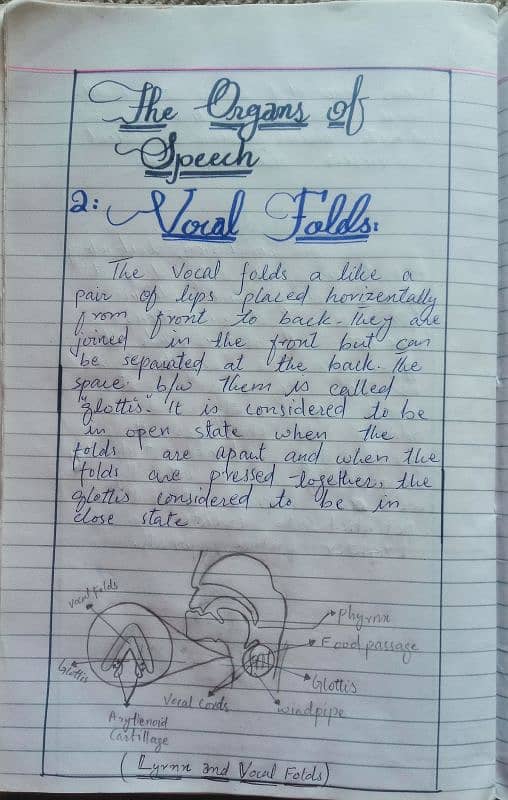 The Organs of
Speech
2: Vocal Folds:
The Vocal folds a like a
pair of lips placed horizentally
from front to back. They are
joined in the front but can
be separated at the back. The
space b/w them is called
"glottis". It is considered to be
in open state when the
folds are apart and when the
folds are pressed together, the
glottis considered to be in
close state
Vocal Folds
Phyrnx
Food passage
Glottis
Glottis
Vocal Cords
windpipe
Arytenoid
Cartillage
(Lyrnx and Vocal Folds)